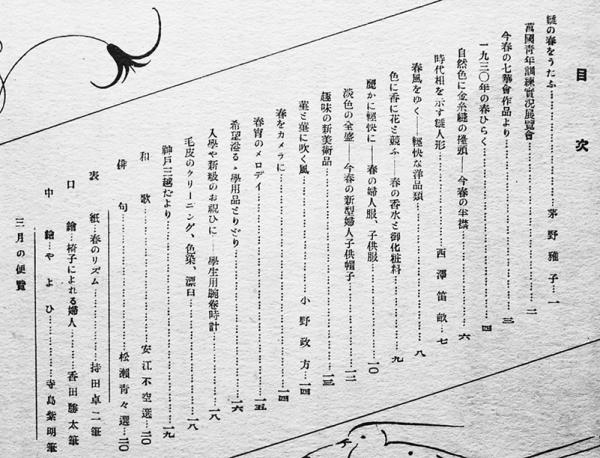 目次
雛の春をうたふ……茅野雅子…一
萬國青年訓練實況展覽會……二
今春の七華會作品より……三
一九三〇年の春ひらく……四
自然色に金糸縫の擡頭――今春の半襟……六
時代相を示す雛人形……西澤笛畝…七
春風をゆく――輕快な洋品類……八
色に香に花と競ふ――春の香水と御化粧料……九
麗かに輕快に――春の婦人服、子供服……一〇
淡色の全盛――今春の新型婦人子供帽子……一二
趣味の新美術品……一三
菫と菫に吹く風……小野政方…一四
春をカメラに……一四
春宵のメロデイ……一五
希望溢るゝ學用品とりどり……一六
入學や新級のお祝ひに――學生用腕卷時計……一八
毛皮のクリーニング、色染、漂白……一八
神戸三越だより……一九
和歌……安江不空選…二〇
俳句……松瀬青々選…二〇
表紙…春のリズム……持田卓二筆
口繪…椅子によれる婦人……香田勝太筆
中繪…やよひ……寺島紫明筆
三月の便覽